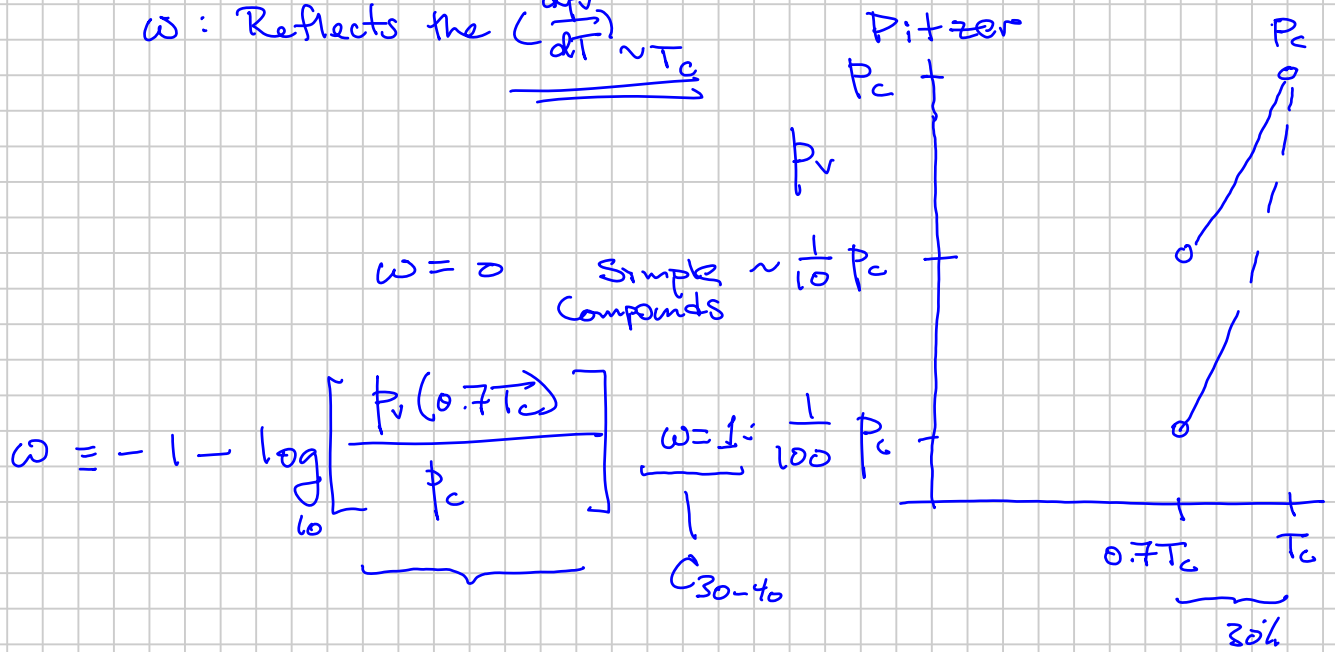 ω : Reflects the (dpv/dT) ~Tc
Pitzer
Pc
Pc
pv
ω = 0 Simple ~ 1/10 Pc
Compounds
ω ≡ -1 - log10 [pv(0.7Tc)/pc]
ω=1: 1/100 Pc
C30-40
0.7Tc Tc
30%